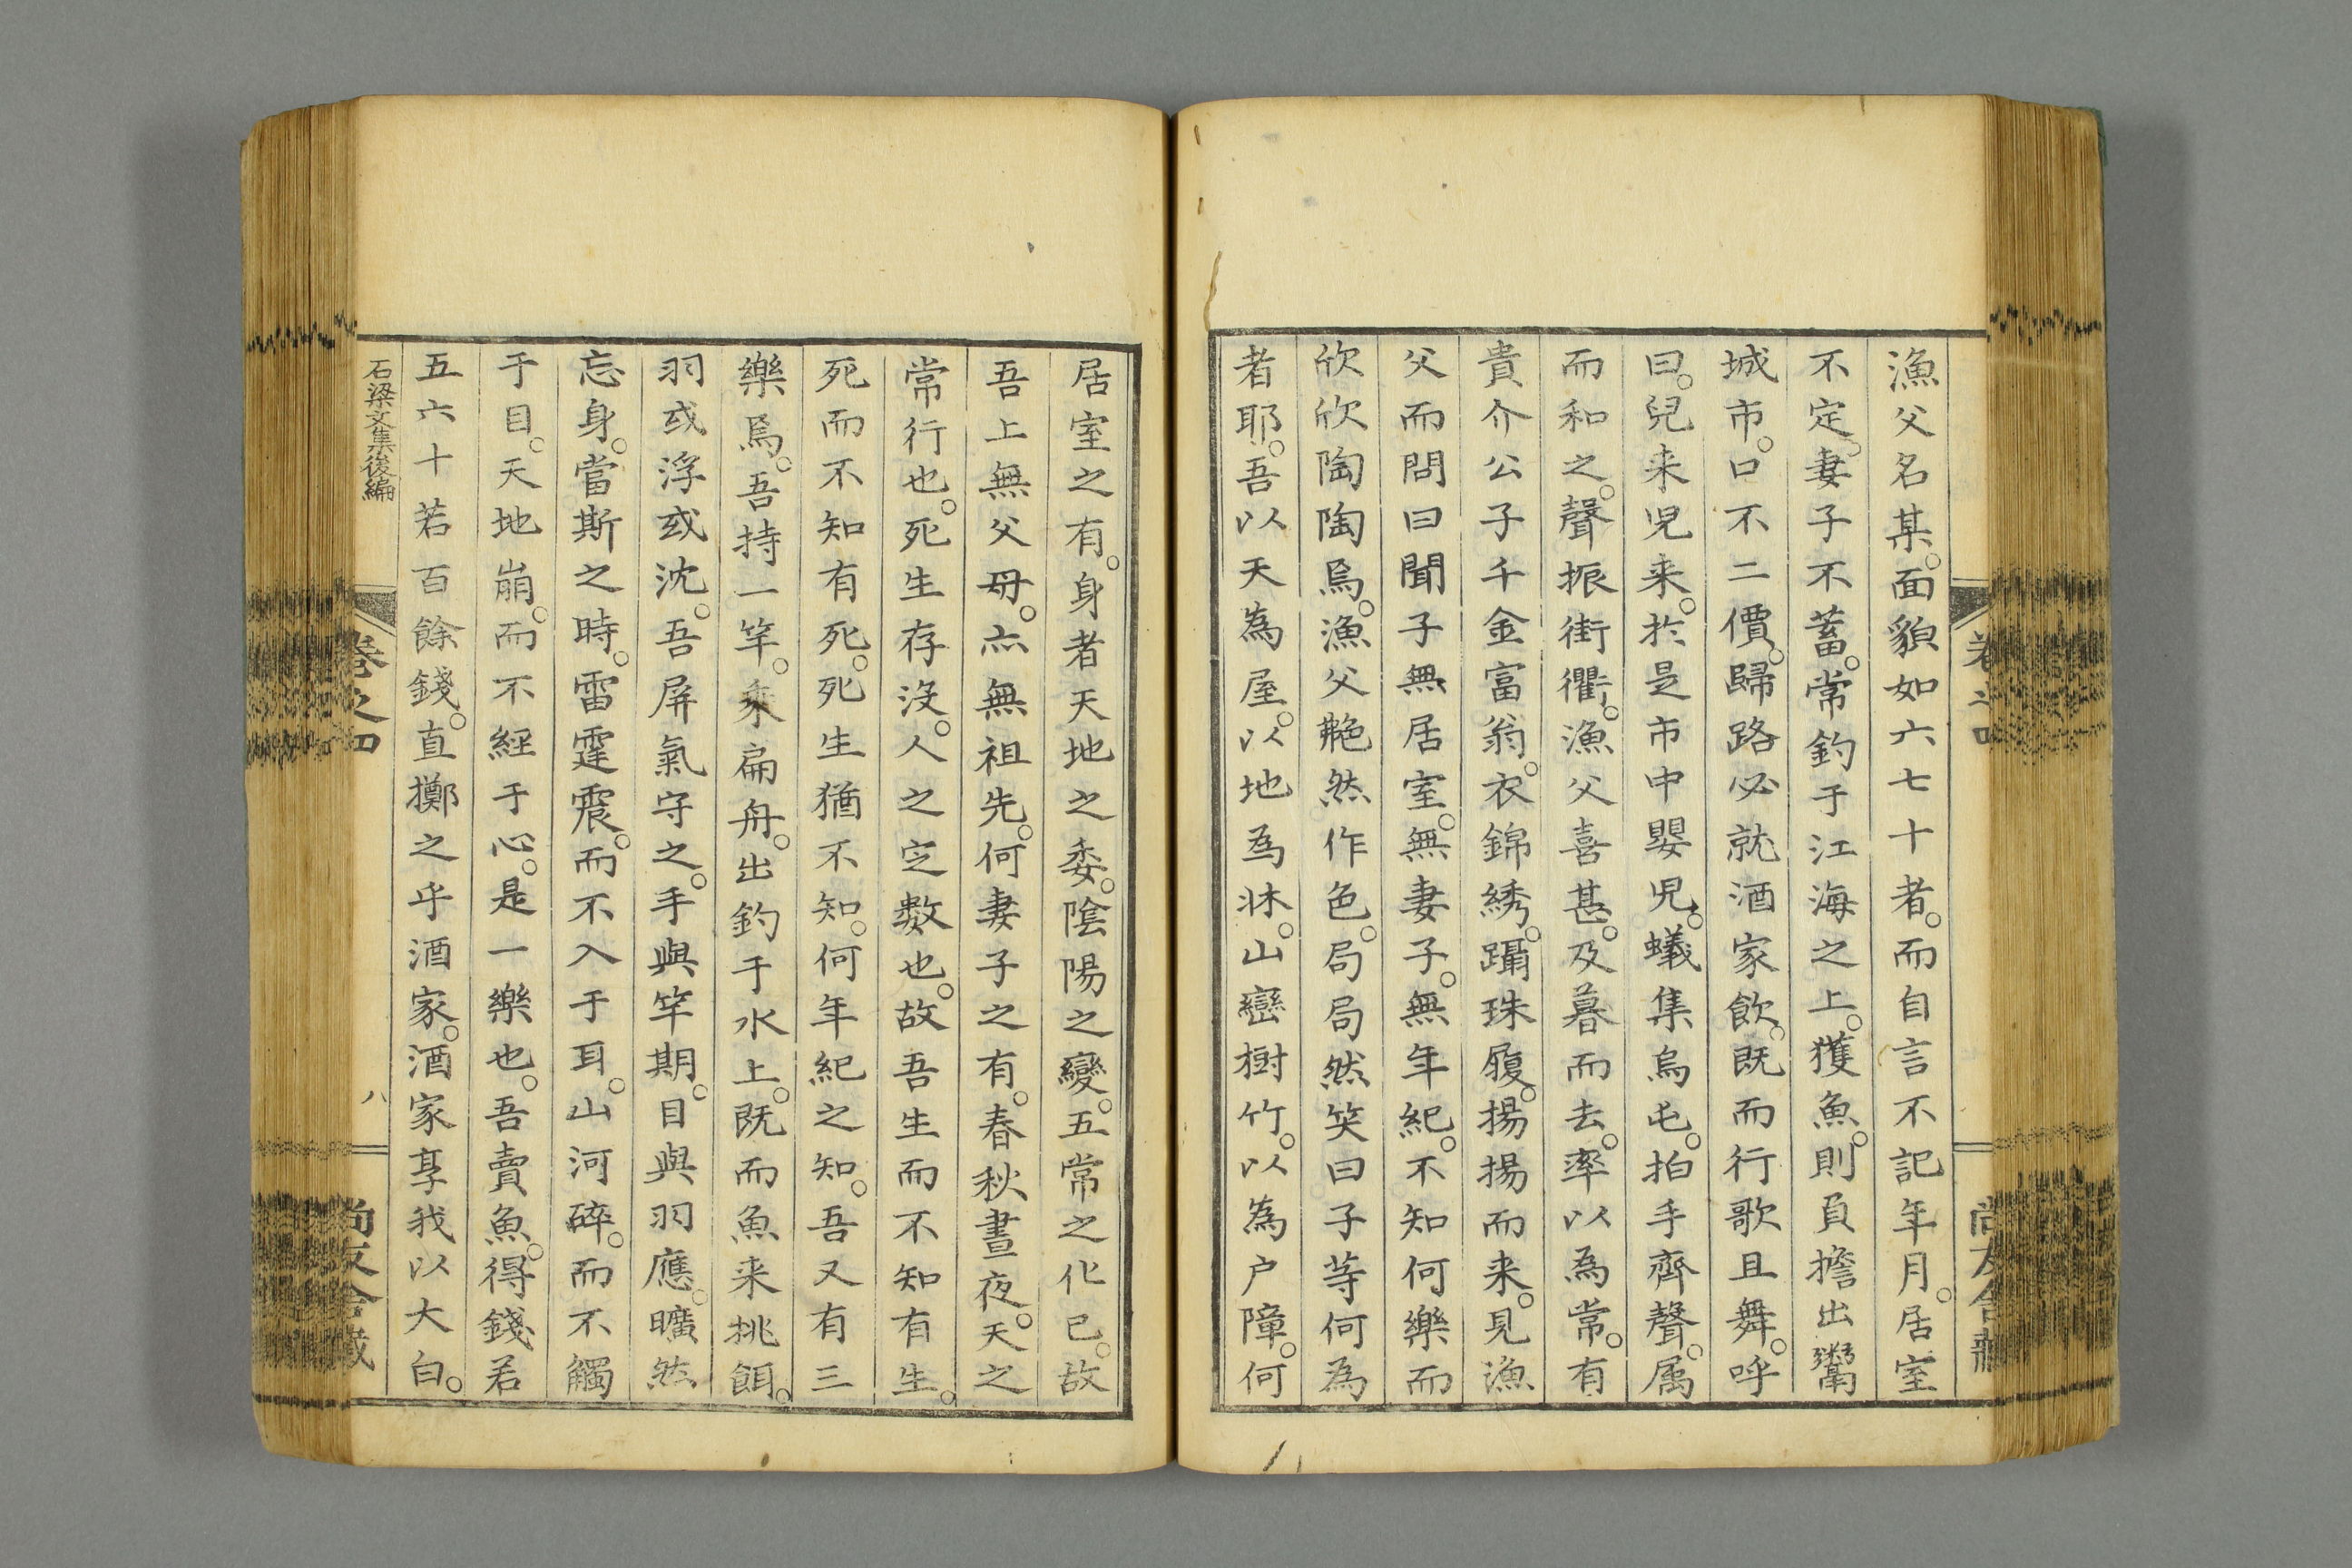 漁父名某。面貌如六七十者。而自言不記年月。居室
不定。妻子不蓄。常釣于江海之上。獲魚。則負擔出鬻
城市。口不二價。歸路必就酒家飲。既而行歌且舞。呼
曰。兒来児来。於是市中嬰児。蟻集烏屯。拍手齊聲。属
而和之。聲振街衢。漁父喜甚。及暮而去。率以為常。有
貴介公子千金富翁。衣錦綉。躡珠履。揚揚而来。見漁
父而問曰聞子無居室。無妻子。無年紀。不知何樂而
欣欣陶陶焉。漁父艴然作色。局局然笑曰子等何為
者耶。吾以天為屋。以地為牀。山巒樹竹。以為户障。何
卷之四
尚友舍藏
居室之有。身者天地之委。陰陽之變。五常之化已。故
吾上無父母。亦無祖先。何妻子之有。春秋晝夜。天之
常行也。死生存没。人之定数也。故吾生而不知有生。
死而不知有死。死生猶不知。何年紀之知。吾又有三
樂焉。吾持一竿。乘扁舟。出釣于水上。既而魚来挑餌。
羽或浮或沈。吾屏氣守之。手與竿期。目與羽應。曠然
忘身。當斯之時。雷霆震。而不入于耳。山河碎。而不觸
于目。天地崩。而不経于心。是一樂也。吾賣魚。得錢若
五六十若百餘錢。直擲之乎酒家。酒家享我以大白。
石梁文集後編
卷之四
八
尚友舍藏